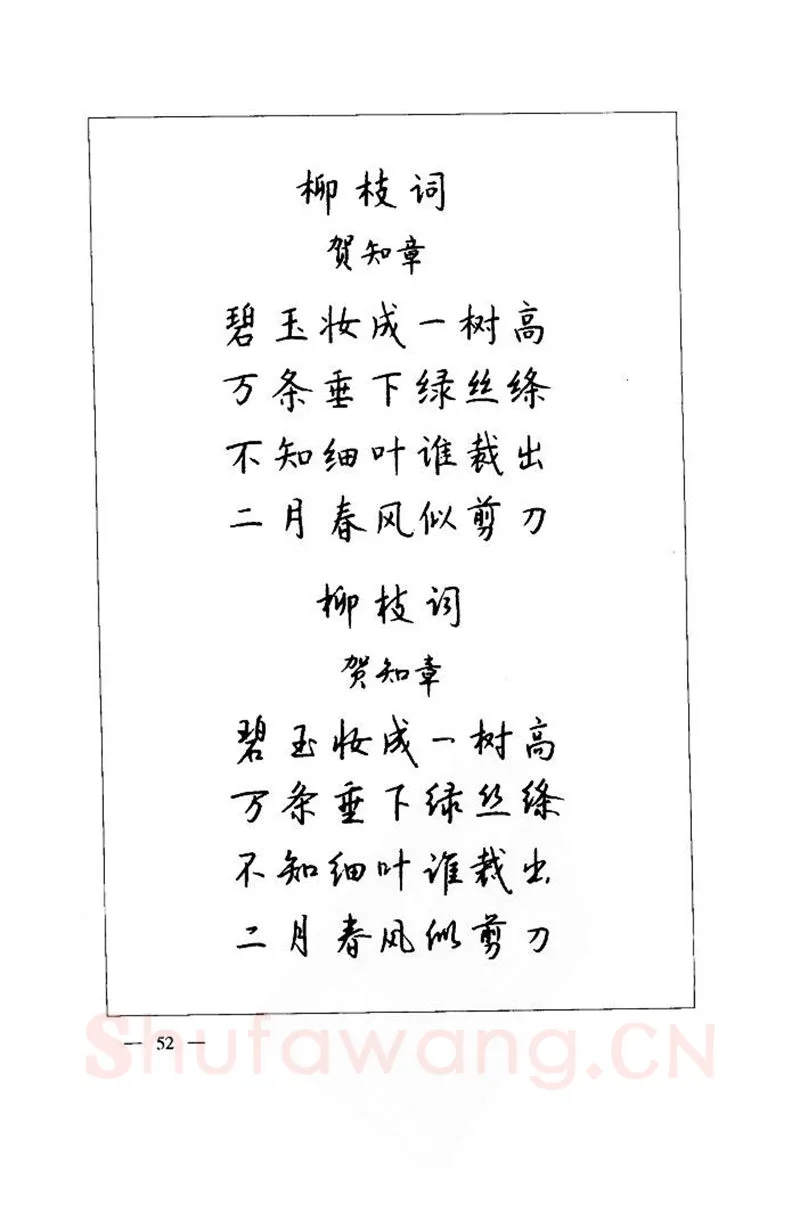 柳枝词
贺知章
碧玉妆成一树高
万条垂下绿丝绦
不知细叶谁裁出
二月春风似剪刀
柳枝词
贺知章
碧玉妆成一树高
万条垂下绿丝绦
不知细叶谁裁出
二月春风似剪刀
— 52 —
Shufawang.CN